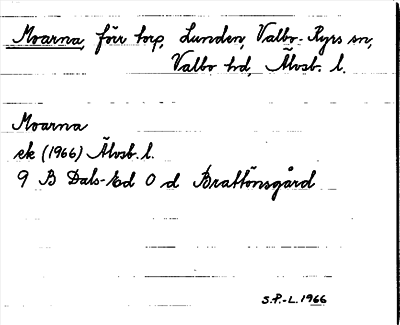 Moarna, förr torp, Lunden, Valbo-Ryrs sn,
Valbo hd, Älvsb. l.
Moarna
ek (1966) Älvsb. l.
9 B Dals-Ed 0 d Brattönsgård
S.P.-L. 1966